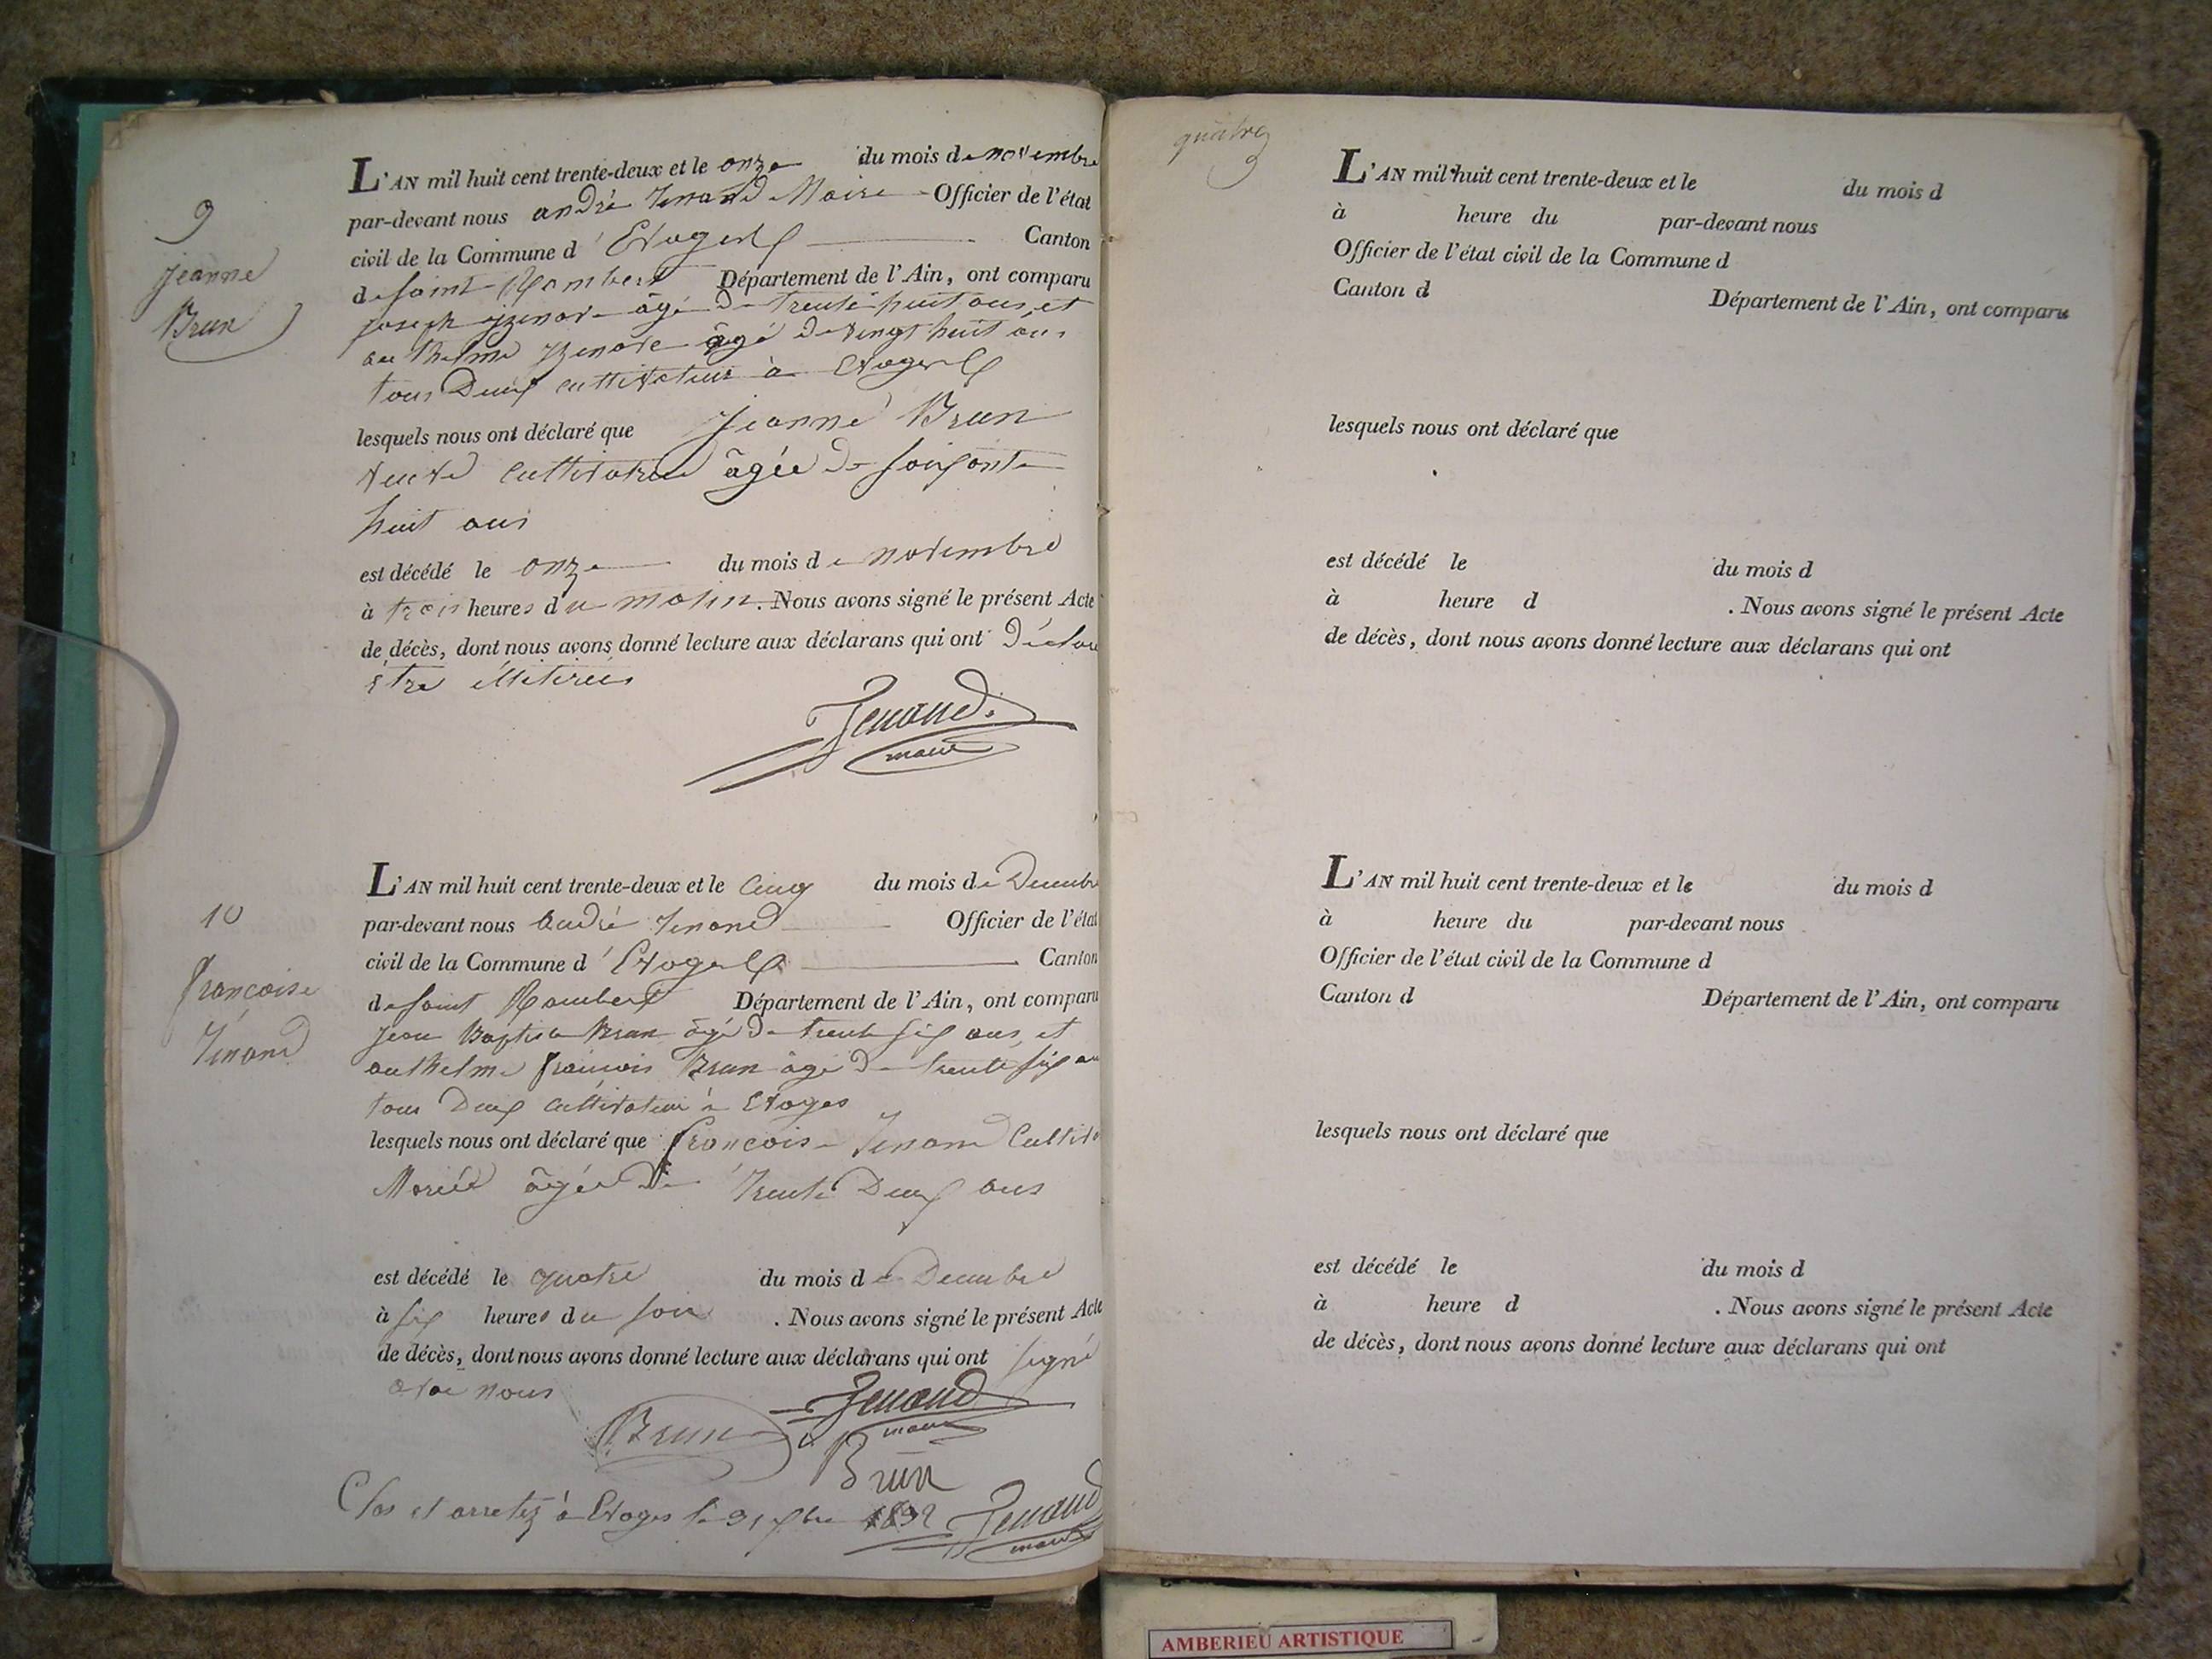 9
jeanne
Brun
L'AN mil huit cent trente-deux et le onze du mois de novembre
par-devant nous andré Tenand Maire Officier de l'état
civil de la Commune d'Evoges Canton
de saint Rambert Département de l'Ain, ont comparu
joseph âgé de trente huit ans, et
anthelme âgé de vingt huit ans
tous Deux cultivateurs à Evoges
lesquels nous ont déclaré que Jeanne Brun
veuve cultivatrice âgée de soixante
huit ans
est décédé le onze du mois de novembre
à trois heures du matin. Nous avons signé le présent Acte
de décès, dont nous avons donné lecture aux déclarans qui ont Déclaré
être illitirés
Tenand.
maire
10
françoise
Tenand
L'AN mil huit cent trente-deux et le Cinq du mois de Decembre
par-devant nous André Tenand Officier de l'état
civil de la Commune d'Evoges Canton
de saint Rambert Département de l'Ain, ont comparu
Jean Baptiste Brun âgé de trente six ans, et
anthelme françois Brun âgé de trente six ans
tous Deux cultivateurs à Evoges
lesquels nous ont déclaré que françoise Tenand Cultiv
Mariée âgée de trente Deux ans
est décédé le quatre du mois de Decembre
à six heures du soir. Nous avons signé le présent Acte
de décès, dont nous avons donné lecture aux déclarans qui ont signé
avec nous
Tenand
maire
Brun
Brun
Clos et arretez à Evoges le 31 1832
Tenand
maire
quatre
L'AN mil huit cent trente-deux et le du mois d
à heure du par-devant nous
Officier de l'état civil de la Commune d
Canton d Département de l'Ain, ont comparu
lesquels nous ont déclaré que
est décédé le du mois d
à heure d . Nous avons signé le présent Acte
de décès, dont nous avons donné lecture aux déclarans qui ont
L'AN mil huit cent trente-deux et le du mois d
à heure du par-devant nous
Officier de l'état civil de la Commune d
Canton d Département de l'Ain, ont comparu
lesquels nous ont déclaré que
est décédé le du mois d
à heure d . Nous avons signé le présent Acte
de décès, dont nous avons donné lecture aux déclarans qui ont
AMBERIEU ARTISTIQUE